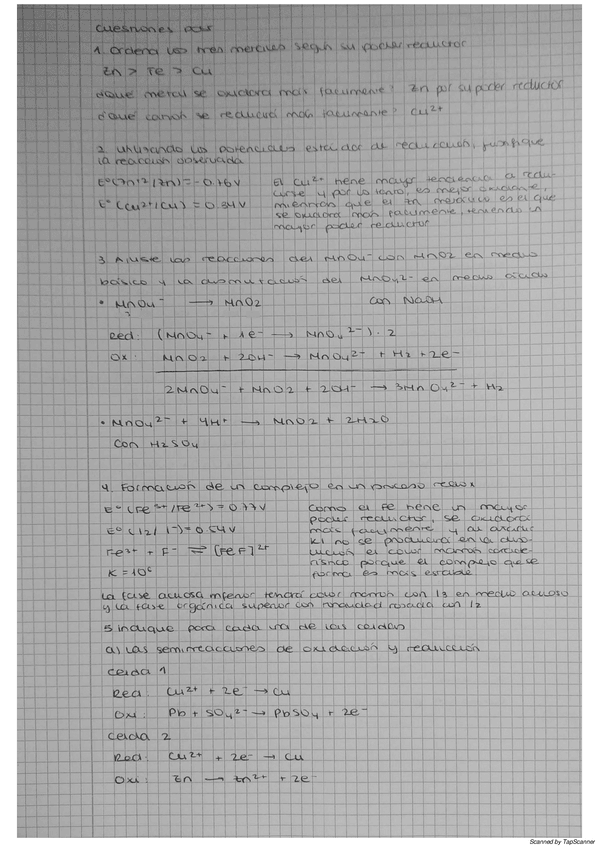 Cuestiones
1. Ordena los tres metales según su poder reductor
Zn > Fe > Cu
¿Qué metal se oxidará más fácilmente? Zn por su poder reductor
¿Qué catión se reducirá más fácilmente? Cu²⁺
2. Utilizando los potenciales estándar de reducción, justifique
la reacción observada
E°(Zn⁺²/Zn) = -0.76V
E°(Cu²⁺/Cu) = 0.34V
El Cu²⁺ tiene mayor tendencia a redu-
cirse y por lo tanto, es mejor oxidante,
mientras que el Zn metálico es el que
se oxidará más fácilmente, teniendo un
mayor poder reductor
3. Ajuste las reacciones del MnO₄⁻ con MnO2 en medio
básico y la dismutación del MnO₄²⁻ en medio ácido
• MnO₄⁻ → MnO2 con NaOH
Red: (MnO₄⁻ + 1e⁻ → MnO₄²⁻)·2
Ox: MnO2 + 2OH⁻ → MnO₄²⁻ + H2 + 2e⁻
2MnO₄⁻ + MnO2 + 2OH⁻ → 3MnO₄²⁻ + H2
• MnO₄²⁻ + 4H⁺ → MnO2 + 2H2O
con H2SO4
4. Formación de un complejo en un proceso redox
E°(Fe³⁺/Fe²⁺) = 0.77V
E°(I2/I⁻) = 0.54V
Fe³⁺ + F⁻ ⇌ [FeF]²⁺
K = 10⁶
Como el Fe tiene un mayor
poder reductor, se oxidará
más fácilmente y al añadir
KI no se producirá en la diso-
lución el color marrón caracte-
rístico porque el complejo que se
forma es más estable
La fase acuosa inferior tendrá color marrón con I3 en medio acuoso
y la fase orgánica superior con tonalidad rosada con I2
5 Indique para cada una de las celdas
a) Las semirreacciones de oxidación y reducción
Celda 1
Red: Cu²⁺ + 2e⁻ → Cu
Oxi: Pb + SO₄²⁻ → PbSO₄ + 2e⁻
Celda 2
Red: Cu²⁺ + 2e⁻ → Cu
Oxi: Zn → Zn²⁺ + 2e⁻
Scanned by TapScanner